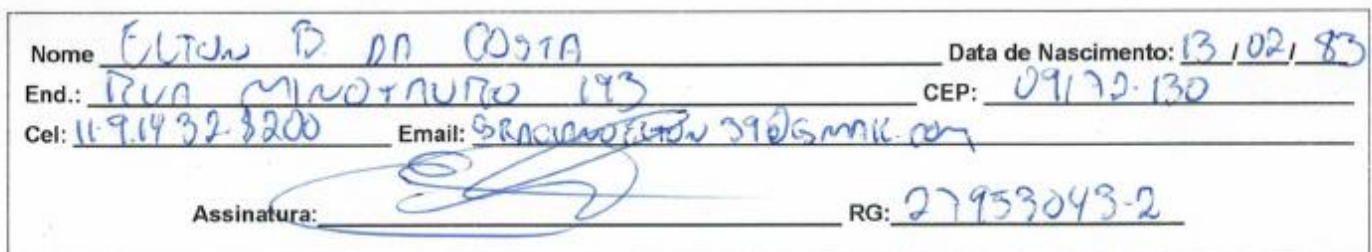 Nome ELTON B. DA COSTA Data de Nascimento: 13/02/83
End.: RUA MINOTAURO 193 CEP: 09172-130
Cel: 11-9.1432-8200 Email:
Assinatura: RG: 27953043-2